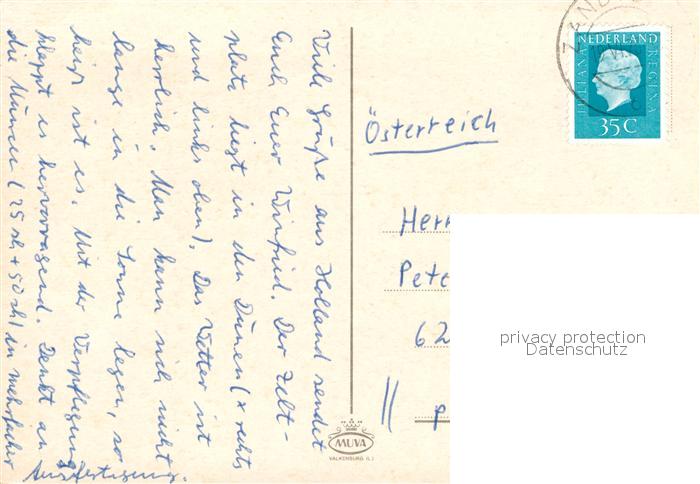 Viele Grüße aus Holland sendet
Euch Euer Winfried. Der Zelt-
platz liegt in den Dünen (x rechts
und links oben). Das Wetter ist
herrlich. Man kann sich nicht
lange in die Sonne legen, so
heiß ist es. Mit der Verpflegung
klappt es hervorragend. Denkt an
die Münzen (25 sh + 50 sh) in mehrfacher
Ausfertigung.
Österreich
Herr
Pete
62
P
NEDERLAND
JULIANA REGINA
35 C
MUVA
VALKENBURG (L.)
privacy protection
Datenschutz